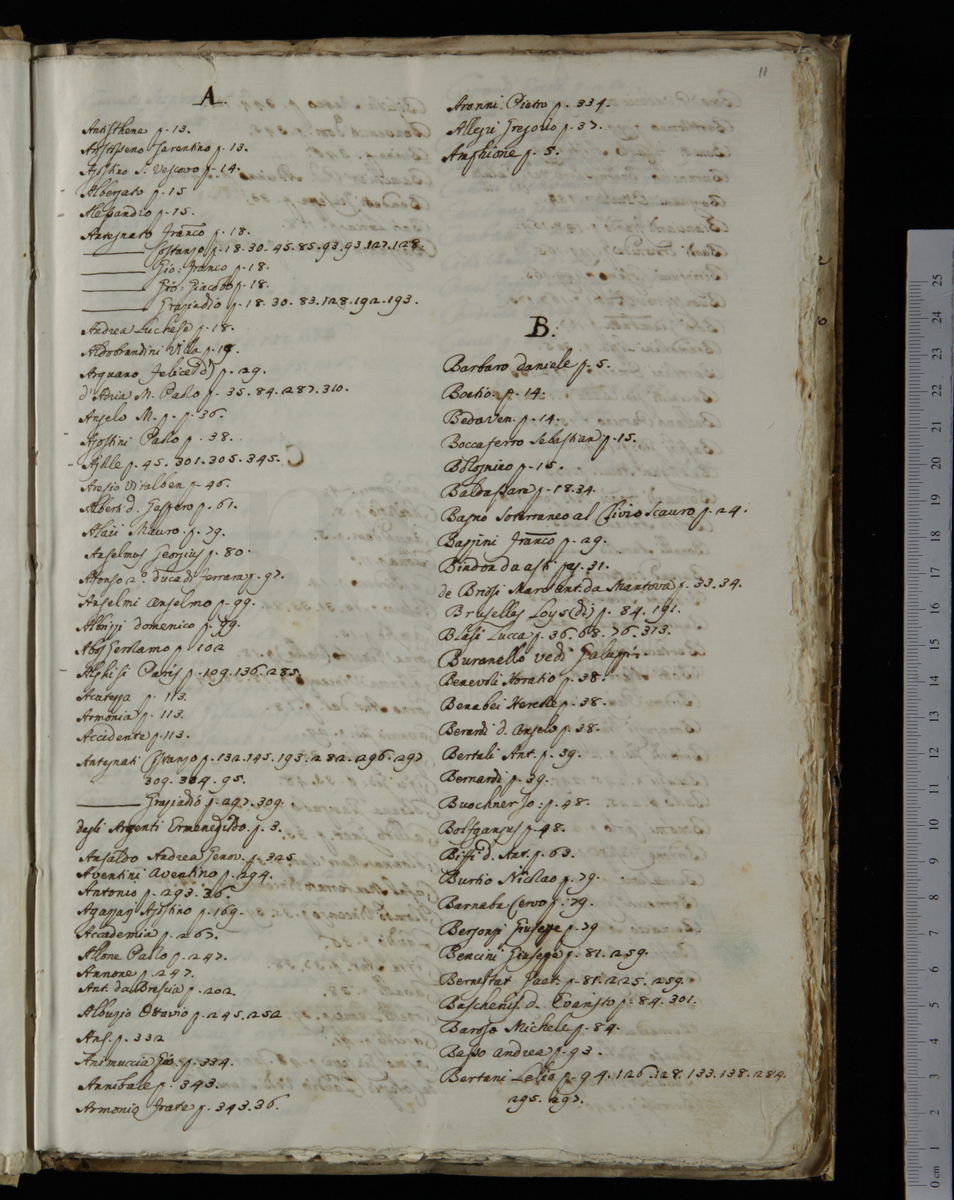 11
A.
Antisthene p. 13.
Aristosseno Tarentino p. 13.
Agostino S. Vescovo p. 14.
Albergato p. 15
Alessandro p. 15.
Antegnato Franco p. 18.
Costanzo p. 18. 30. 45. 85. 93. 93. 127. 128.
Gio: Franco p. 18.
Gio: Giacobo p. 18.
Graziadio p. 18. 30. 83. 128. 192. 193.
Andrea Luchese p. 18.
Aldobrandini Villa p. 19.
Arquano Felice d' p. 29.
d'Adria M. Paolo p. 35. 84. 287. 310.
Angelo M. p. p. 36.
Agostini Paolo p. 38.
p. 45. 301. 305. 345.
Aresio p. 46.
Alberti d. Gasparo p. 61.
Alaii Mauro p. 79.
Anselmus Georgius p. 80.
Alfonso 2.º duca di Ferrara p. 97.
Anselmi Anselmo p. 99.
domenico p. 99.
Gerolamo p. 102
Alghisi Paris p. 109. 136. 285.
p. 113.
Armonia p. 113.
Accidente p. 113.
Antegnati Costanzo p. 132. 145. 195. 282. 296. 297
309. 304. 95.
Graziadio p. 297. 309.
degli Argenti Ermenegildo p. 3.
Ansaldo Andrea Genov. p. 325
Aventini Aventino p. 294.
Antonio p. 293. 36.
Agazzari Agostino p. 169.
Accademia p. 267.
Allone Paolo p. 247.
Annone p. 247.
Ant. da Brescia p. 202.
Albuzio Ottavio p. 245. 252
Ans. p. 332
Animuccia Gio. p. 334.
Annibale p. 343.
Armonio Frate p. 343. 36.
Aronni Pietro p. 334.
Allegri Gregorio p. 37.
Amphione p. 5.
B.
Barbaro daniele p. 5.
Boetio p. 14.
Beda Ven. p. 14.
Boccaferro Sebastian p. 15.
Bolognino p. 15.
Baldassare p. 18. 34.
Bagno Soterraneo al Clivio Scauro p. 24.
Baggini Franco p. 29.
Bindon da asti pag. 31.
de Briosi Marc'ant. da Mantova p. 33. 34.
Bruselles Loys (di) p. 84. 191.
Blasi Lucca p. 36. 68. 76. 313.
Buranello vedi Galuppi.
Benevoli Horatio p. 38.
Benabei Hercole p. 38.
Berardi d. Angelo p. 38.
Bertali Ant. p. 39.
Bernardi p. 39.
Buochner Jo: p. 48.
Bolfgangus p. 48.
Bisi d. Ant. p. 63.
Burtio Niclao p. 79.
Barnaba Cervo p. 79.
Bergonzi Giuseppe p. 79
Bencini Giuseppe p. 81. 259.
Bernestat Gaet. p. 81. 225. 259.
Baschenis d. Evaristo p. 84. 301.
Baroso Michele p. 84.
Basso Andrea p. 93.
Bertani Lelia p. 94. 126. 128. 133. 138. 284.
295. 297.